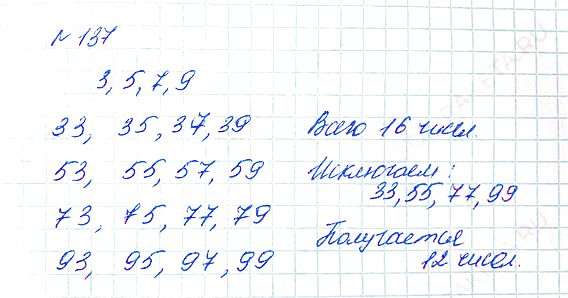 № 137
3, 5, 7, 9
33, 35, 37, 39
53, 55, 57, 59
73, 75, 77, 79
93, 95, 97, 99
Всего 16 чисел.
Исключаем:
33, 55, 77, 99
Получается
12 чисел.